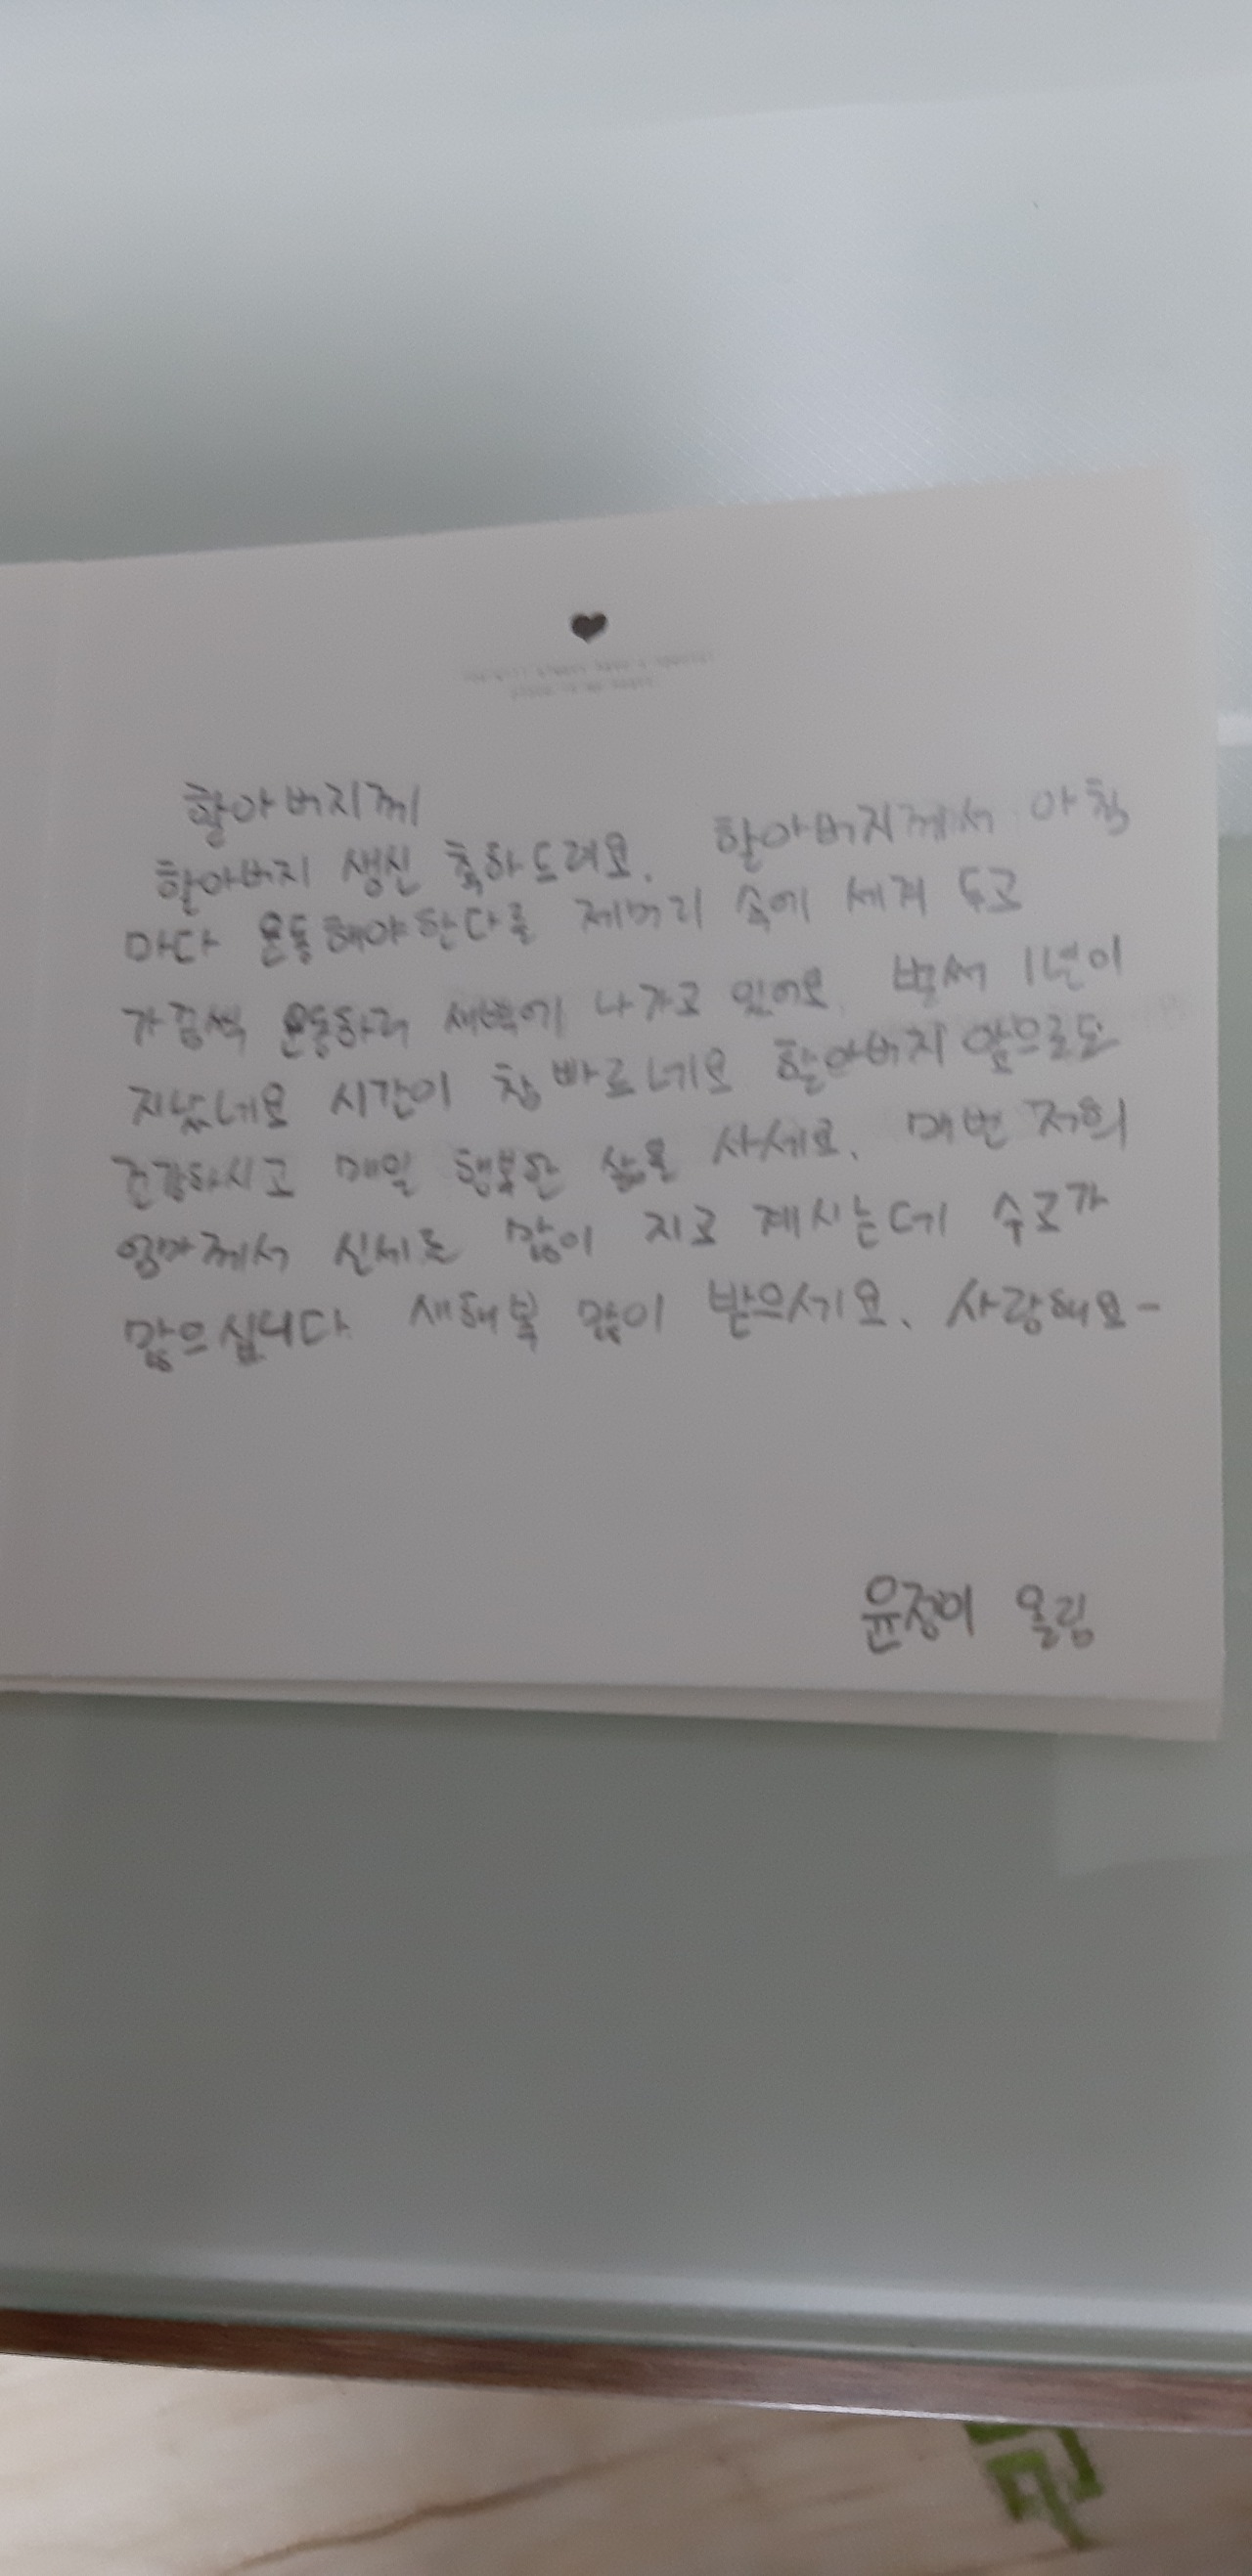 할아버지께
할아버지 생신 축하드려요. 할아버지께서 아침
마다 운동해야한다를 제머리 속에 세겨 두고
가끔씩 운동하러 새벽에 나가고 있어요. 벌써 1년이
지났네요 시간이 참 빠르네요 할아버지 앞으로도
건강하시고 매일 행복한 삶을 사세요. 매번 저희
엄마께서 신세도 많이 지고 계시는데 수고가
많으십니다. 새해 복 많이 받으세요. 사랑해요-
윤정이 올림